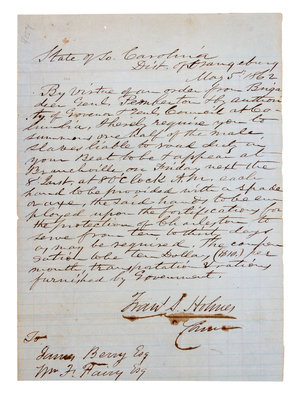 State of So. Carolina
Dist of Orangeburg
May 5th 1862
By virtue of an order from Briga
dier Genl. Pemberton & by author
ity of Govenor & Council at Co
lumbia, I hereby require you to
summon one half of the male
slaves liable to road duty on
your Beat to be & appear at
Branchville on Friday next the
8 Inst, at 8 O'Clock A.M. each
hand to be provided with a spade
or axe, the said hands to be em
ployed upon the fortifications for
the protection of Charleston to
serve from ten to thirty days
as may be required. The compen
sation to be ten Dollars ($10.) per
month, transportation & rations
furnished by Government.
Holmes
To
James Berry Esq
Wm F. Fairy Esq